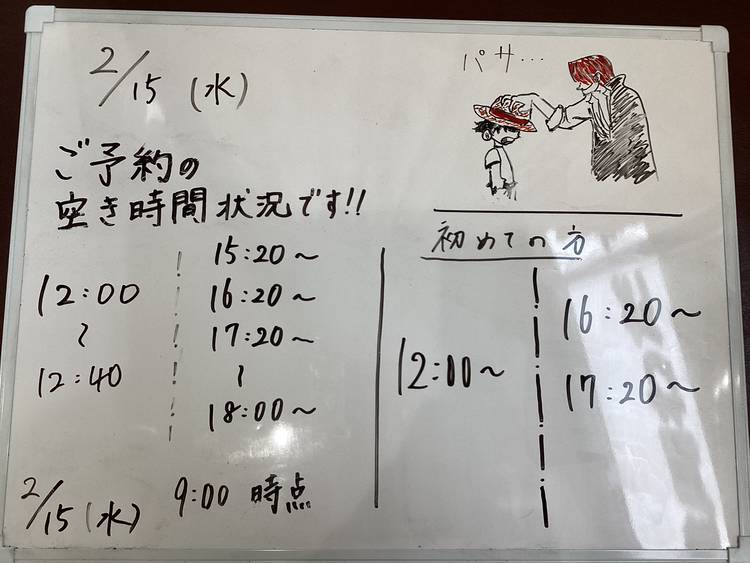 2/15 (水)
パサ…
ご予約の
空き時間状況です!!
12:00
〜
12:40
15:20〜
16:20〜
17:20〜
〜
18:00〜
初めての方
12:00〜
16:20〜
17:20〜
2/15(水) 9:00 時点